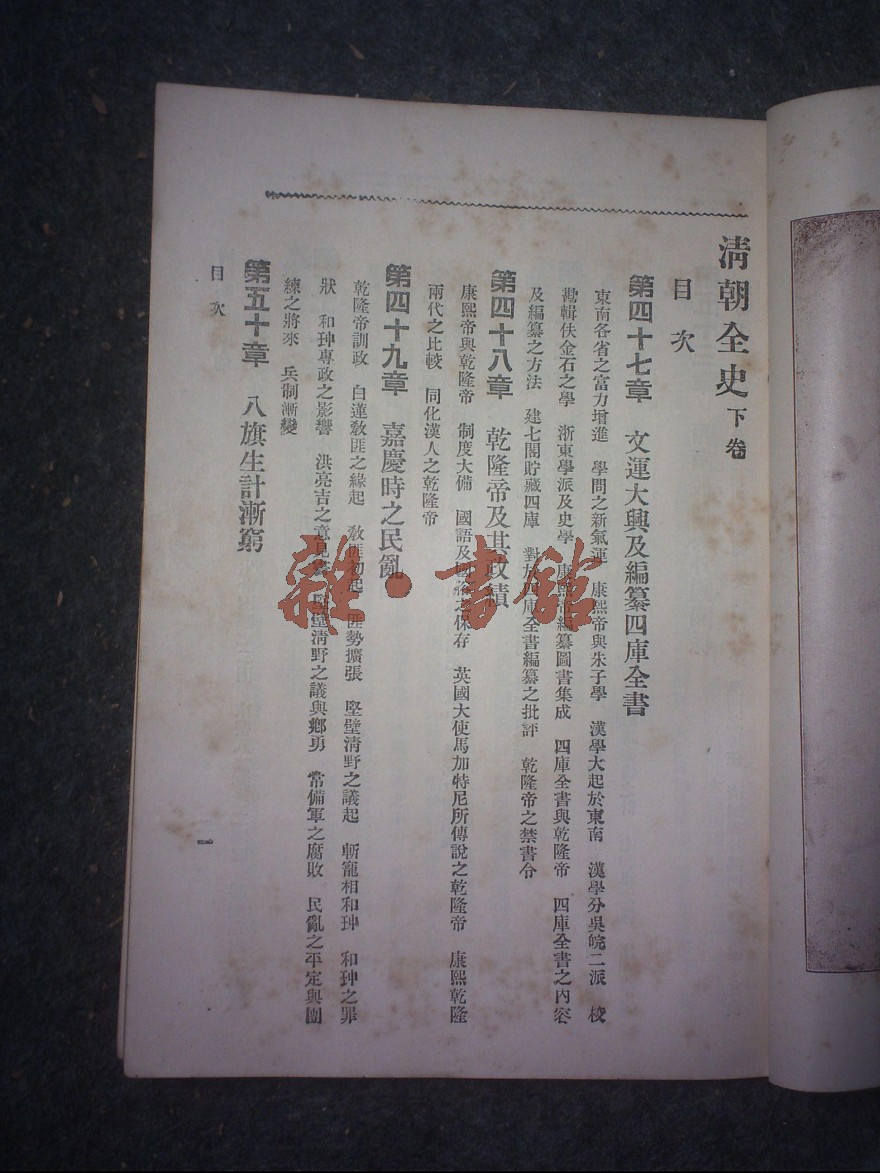 清朝全史 下卷
目次
第四十七章 文運大興及編纂四庫全書
東南各省之富力增進 學問之新氣運 康熙帝與朱子學 漢學大起於東南 漢學分吳皖二派 校
勘輯佚金石之學 浙東學派及史學 康熙帝編纂圖書集成 四庫全書與乾隆帝 四庫全書之內容
及編纂之方法 建七閣貯藏四庫 對於四庫全書編纂之批評 乾隆帝之禁書令
第四十八章 乾隆帝及其政績
康熙帝與乾隆帝 制度大備 國語及國俗之保存 英國大使馬加特尼所傳說之乾隆帝 康熙乾隆
兩代之比較 同化漢人之乾隆帝
第四十九章 嘉慶時之民亂
乾隆帝訓政 白蓮敎匪之緣起 敎匪初起 匪勢擴張 堅壁清野之議起 斬寵相和珅 和珅之罪
狀 和珅專政之影響 洪亮吉之意見書 堅壁清野之議與鄉勇 常備軍之腐敗 民亂之平定與團
練之將來 兵制漸變
第五十章 八旗生計漸窮
目次
一
雜·書館